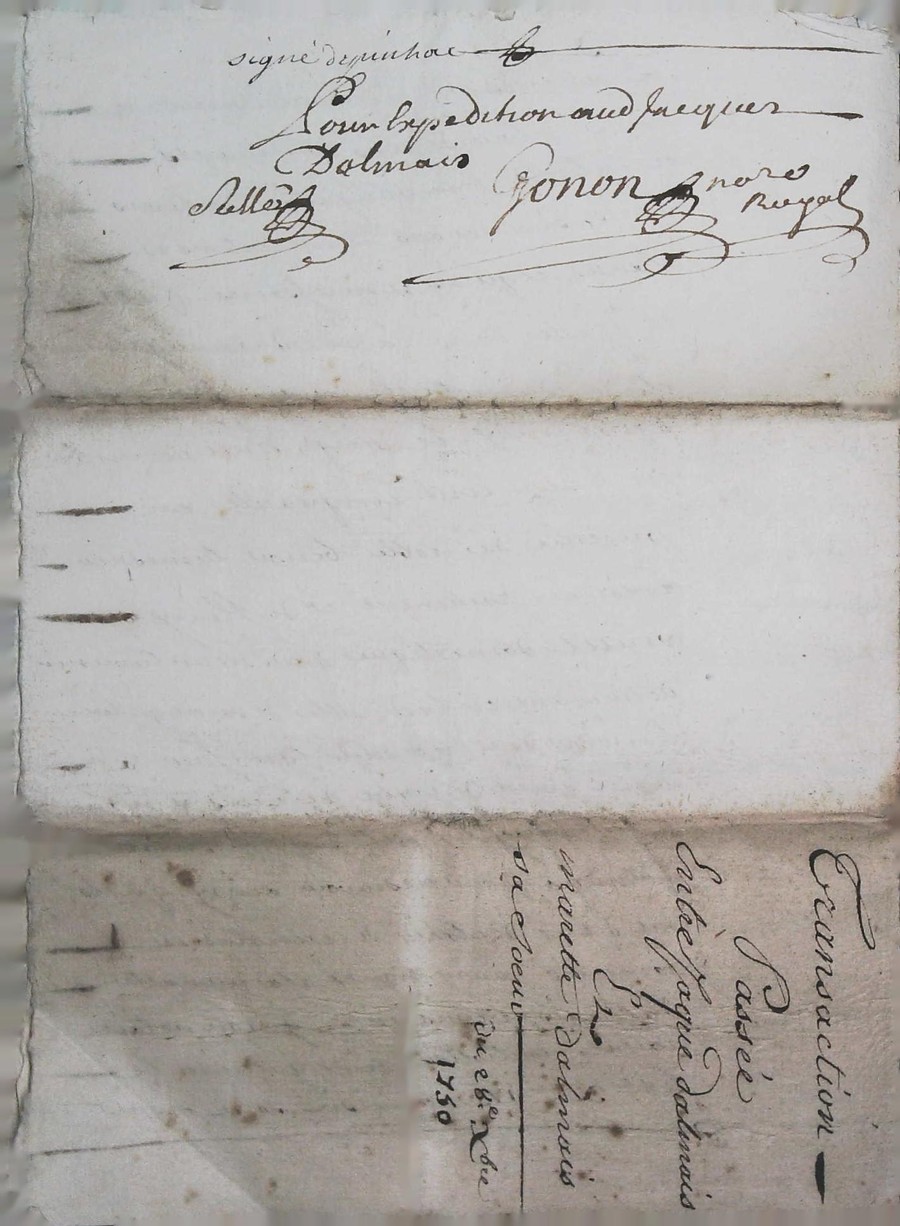 signé depinhac
Pour Expedition aud Jacques
Dalmais
Gonon nore
Sellé Royal
Transaction
Passée
Entre Joque dalmais
Et
mariette Dalmais
sa soeur
du 28e Xbre
1750